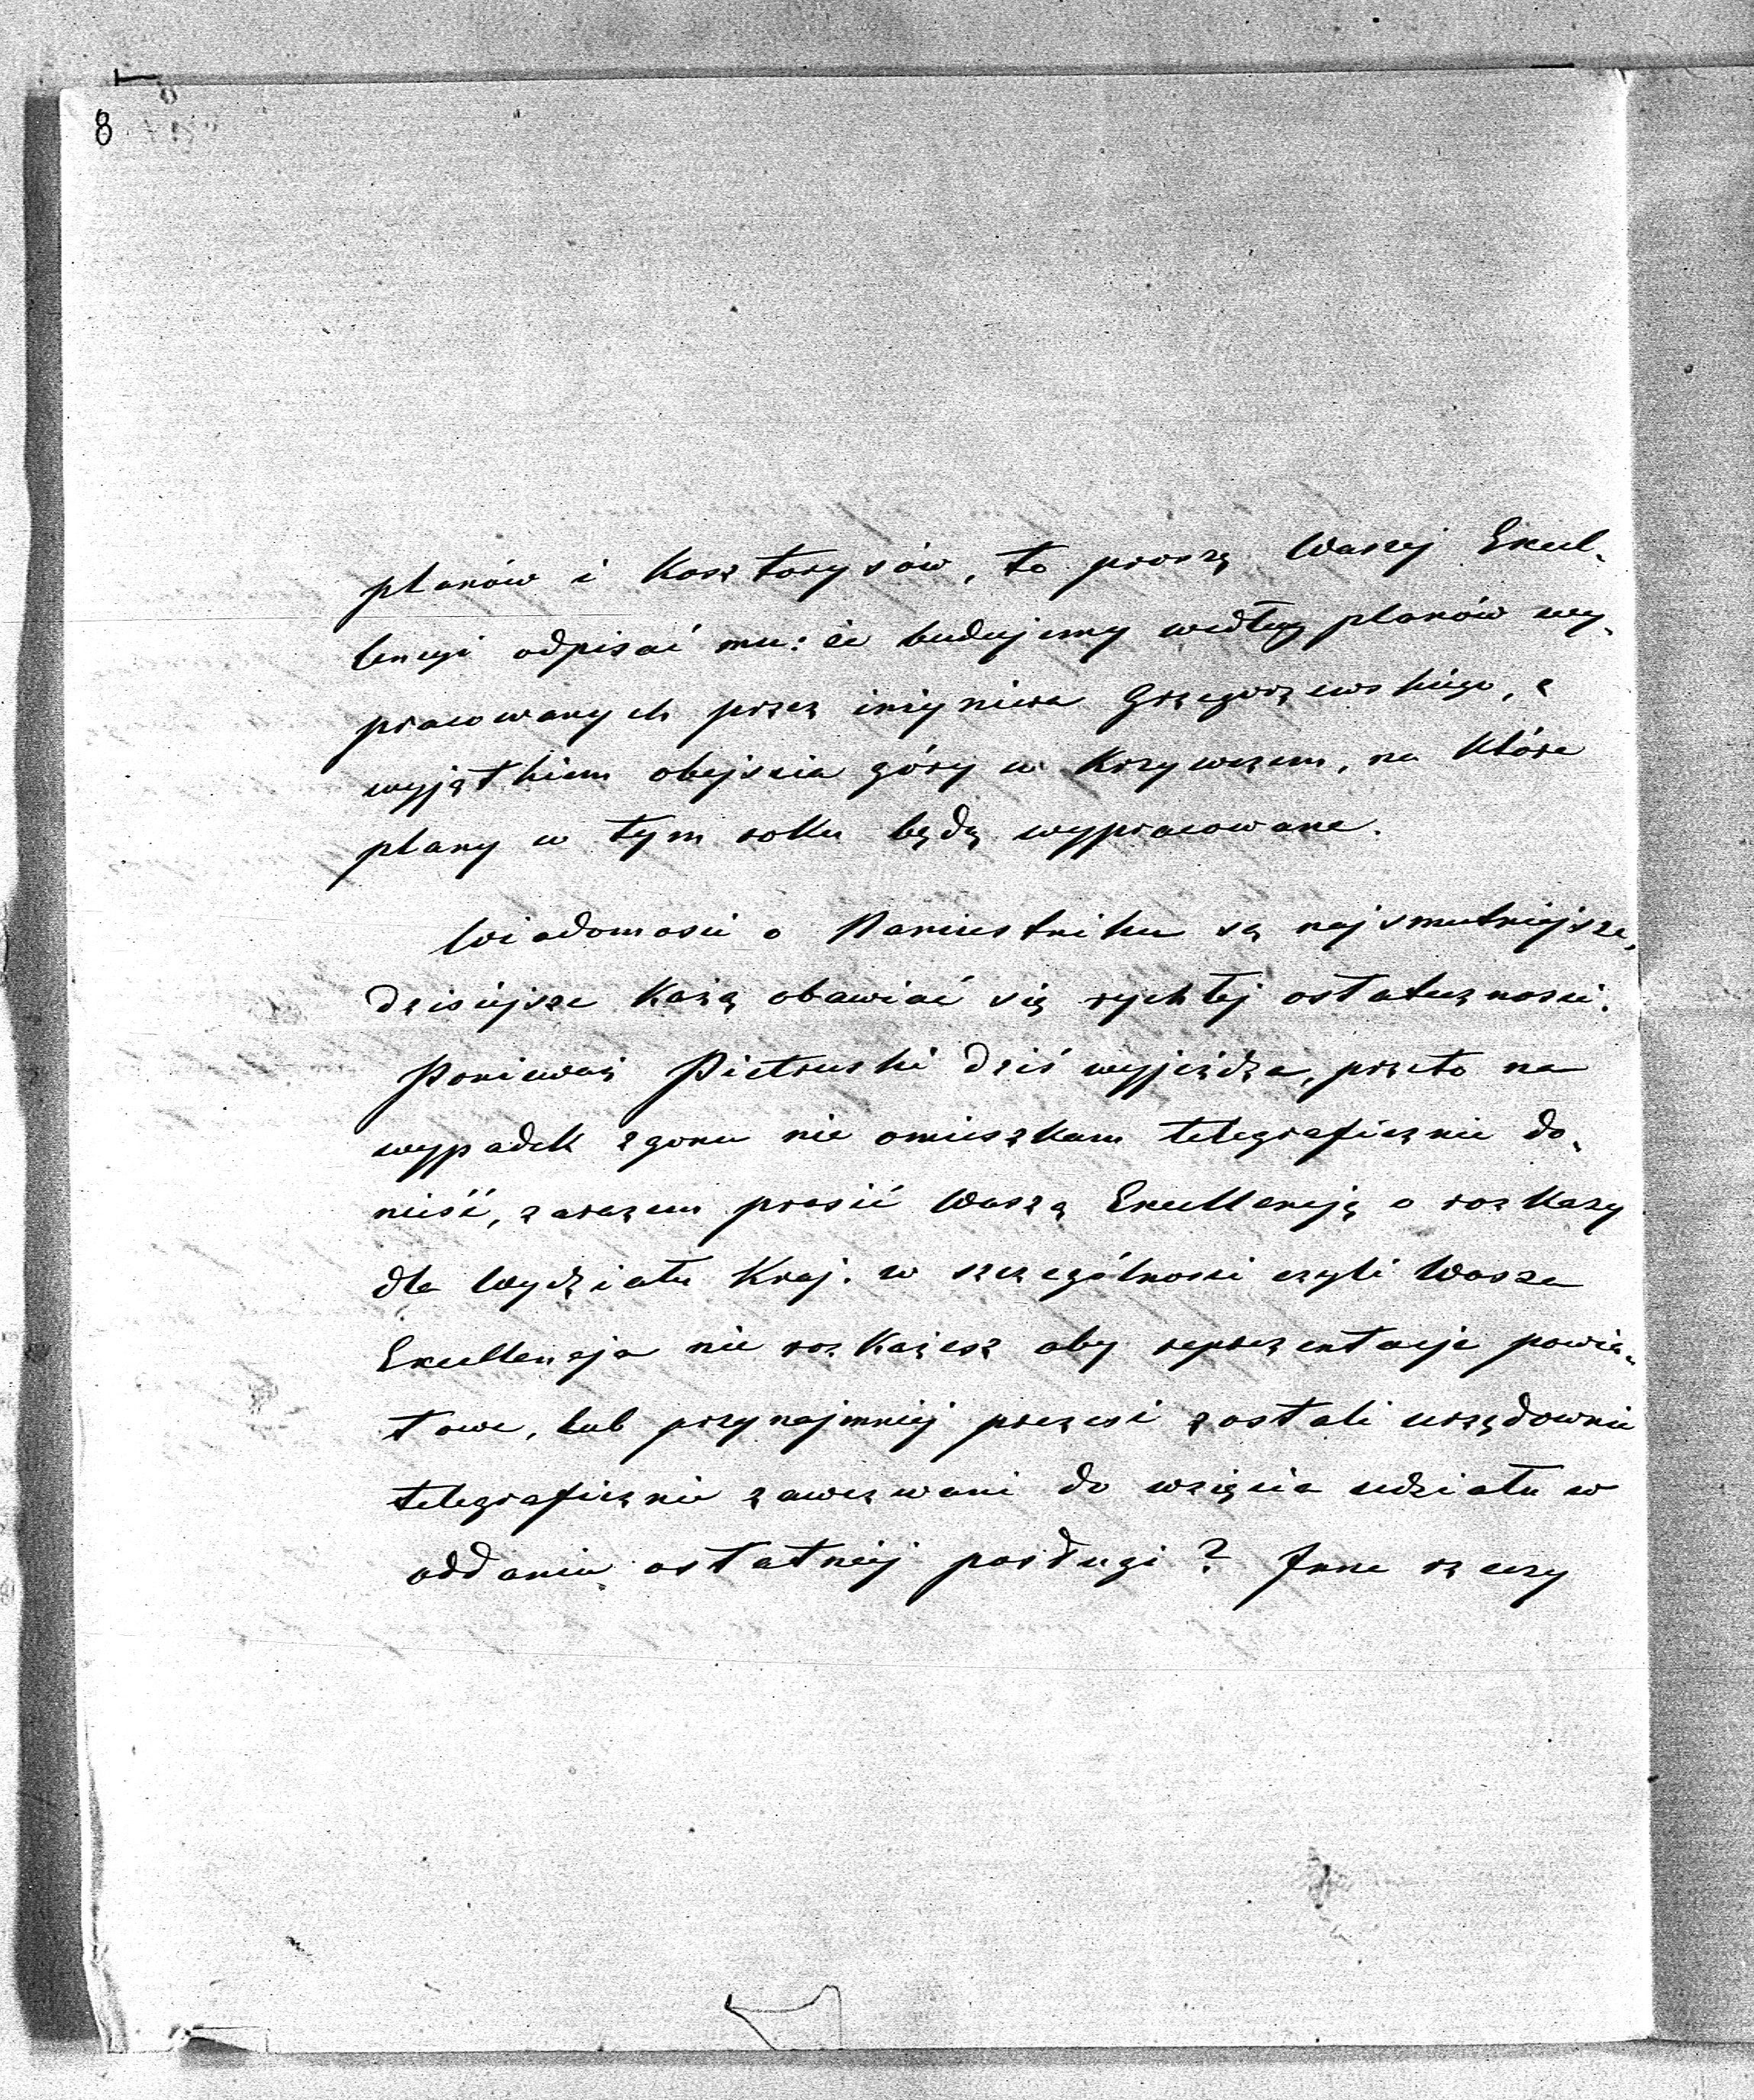 8
planów i kosztorysów, to proszę Waszej Excel-
lencyi odpisać mu: że budujemy według planów wy-
pracowanych przez inżyniera Grzegorzewskiego, z
wyjątkiem obejścia góry w Krzywczem, na które
plany w tym roku będą wypracowane.
Wiadomości o Namiestniku są najsmutniejsze,
dzisiejsze każą obawiać się rychłej ostateczności.
Ponieważ Pietruski dziś wyjeżdża, przeto na
wypadek zgonu nie omieszkam telegraficznie do-
nieść, zarazem prosić Waszą Excellencyję o rozkazy
dla Wydziału Kraj. w szczególności czyli Wasza
Excellencja nie rozkażesz aby reprezentacje powia-
towe, lub przynajmniej prezesi zostali urzędownie
telegraficznie zawezwani do wzięcia udziału w
oddaniu ostatniej posługi? Inne rzeczy